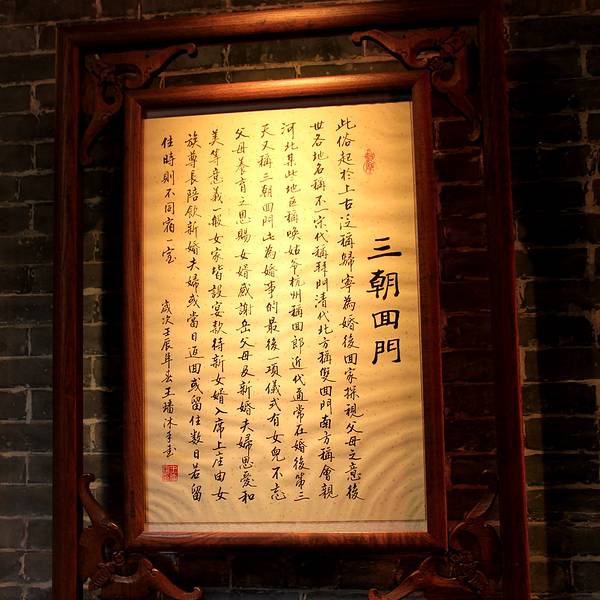 三朝回門
此俗起於上古泛稱歸寧為婚後回家探視父母之意後
世各地名稱不一宋代稱拜門清代北方稱雙回門南方稱會親
河北某些地區稱喚姑爷杭州稱回郎近代通常在婚後第三
天又稱三朝回門此為婚事的最後一項儀式有女兒不忘
父母養育之恩賜女婿感謝岳父母及新婚夫婦恩愛和
美等意義一般女家皆設宴款待新女婿入席上座由女
族尊長陪飲新婚夫婦或當日返回或留住数日若留
住時則不同宿一室
歲次壬辰年 王墙沐手書